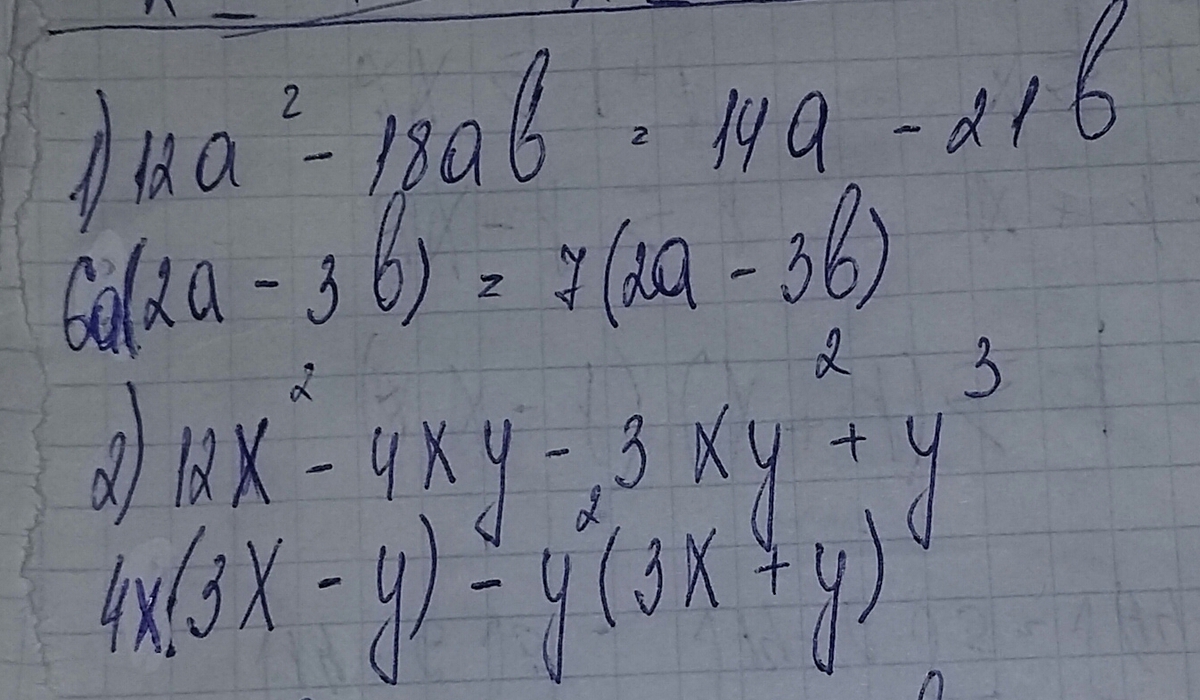 1) 12a² - 18ab = 14a - 21b
6a(2a - 3b) = 7(2a - 3b)
2) 12x² - 4xy - 3xy² + y³
4x(3x - y) - y²(3x + y)